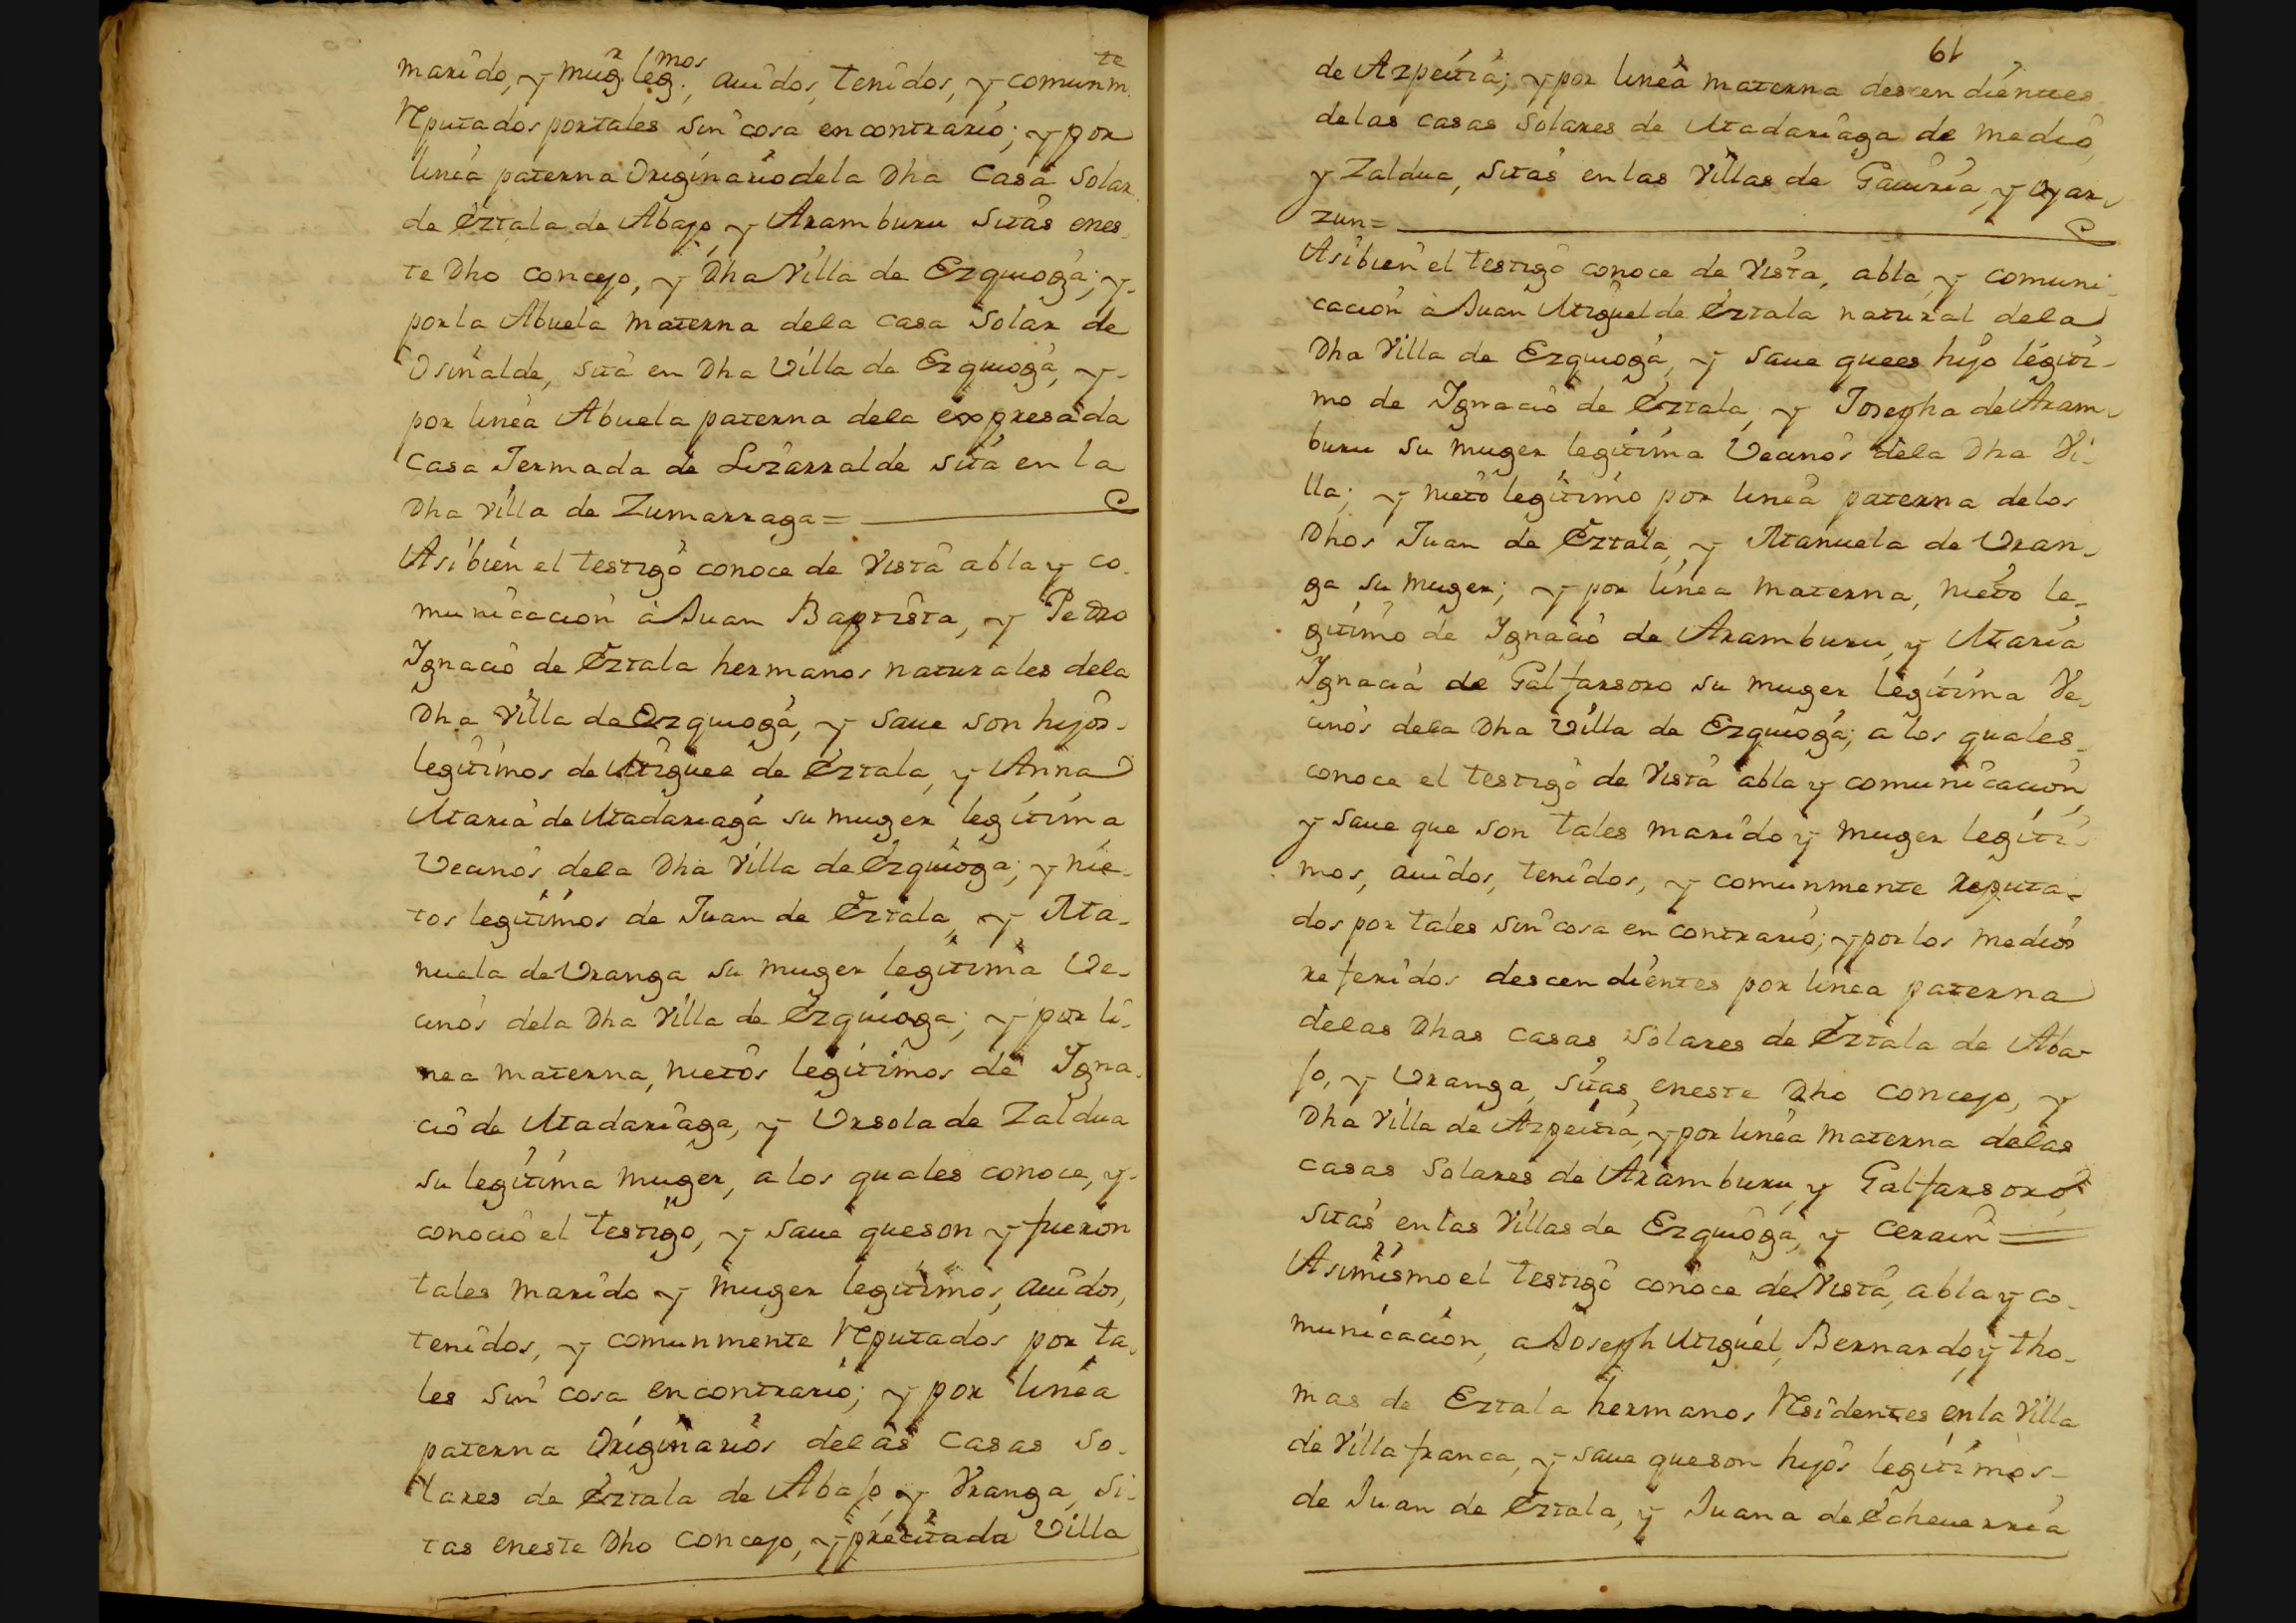 marido, y mugr. legmos., auidos, tenidos, y comunmte.
Reputados por tales sin cosa en contrario; y por
linea paterna Originario dela Dha Casa Solar
de Eztala de Abajo, y Aramburu Sitas enes-
te Dho concejo, y Dha Villa de Ezquioga; y-
por la Abuela materna dela casa Solar de
Osinalde, sita en Dha Villa de Ezquioga, y-
por linea Abuela paterna dela expresada
Casa Jermada de Lizarralde sita en la
Dha villa de Zumarraga=
Asibien el testigo conoce de Vista abla y co-
municacion à Juan Baptista, y Pedro
Ignacio de Eztala hermanos naturales dela
Dha Villa de Ezquioga, y saue son hijos-
legitimos de Miguel de Eztala, y Anna
Maria de Madariaga su muger legitima
Vecinos dela Dha Villa de Ezquioga; y nie-
tos legitimos de Juan de Eztala, y Ma-
nuela de Vranga su muger legitima Ve-
cinos dela Dha Villa de Ezquioga; y por li-
nea materna, nietos legitimos de Igna-
cio de Madariaga, y Ursola de Zaldua
su legitima muger, a los quales conoce, y-
conocio el testigo, y saue queson y fueron
tales marido y muger legitimos, auidos,
tenidos, y comunmente Reputados por ta-
les sin cosa en contrario; y por linea
paterna Originarios delas Casas So-
lares de Eztala de Abajo, y Vranga, Si-
tas eneste Dho concejo, y precitada Villa
61
de Azpeitia; y por linea materna descendientes
delas casas Solares de Madariaga de medio,
y Zaldua, sitas en las Villas de Gauiria, y Oyar-
zun=
Asibien el testigo conoce de Vista, abla, y comuni-
cacion à Juan Miguel de Eztala natural dela
Dha Villa de Ezquioga, y saue quees hijo legiti-
mo de Ignacio de Eztala, y Josepha de Aram-
buru su muger legitima Vecinos dela Dha Vi-
lla; y nieto legitimo por linea paterna delos
Dhos Juan de Eztala, y Manuela de Vran-
ga su muger; y por linea materna, nieto le-
gitimo de Ignacio de Aramburu, y Maria
Ignacia de Galfarsoro su muger legitima Ve-
cinos dela Dha Villa de Ezquioga; a los quales-
conoce el testigo de Vista abla y comunicacion,
y saue que son tales marido y muger legiti-
mos, auidos, tenidos, y comunmente Reputa-
dos por tales sin cosa en contrario; y por los medios
referidos descendientes por linea paterna
delas Dhas casas Solares de Eztala de Aba-
jo, y Vranga, sitas eneste Dho concejo, y
Dha Villa de Azpeitia, y por linea materna delas
casas Solares de Aramburu, y Galfarsoro,
sitas en las Villas de Ezquioga, y Cerain=
Asimismo el testigo conoce de Vista, abla y co-
municacion, a Joseph Miguel, Bernardo, y Tho-
mas de Eztala hermanos Residentes en la Villa
de Villa franca, y saue queson hijos legitimos-
de Juan de Eztala, y Juana de Echeuerria